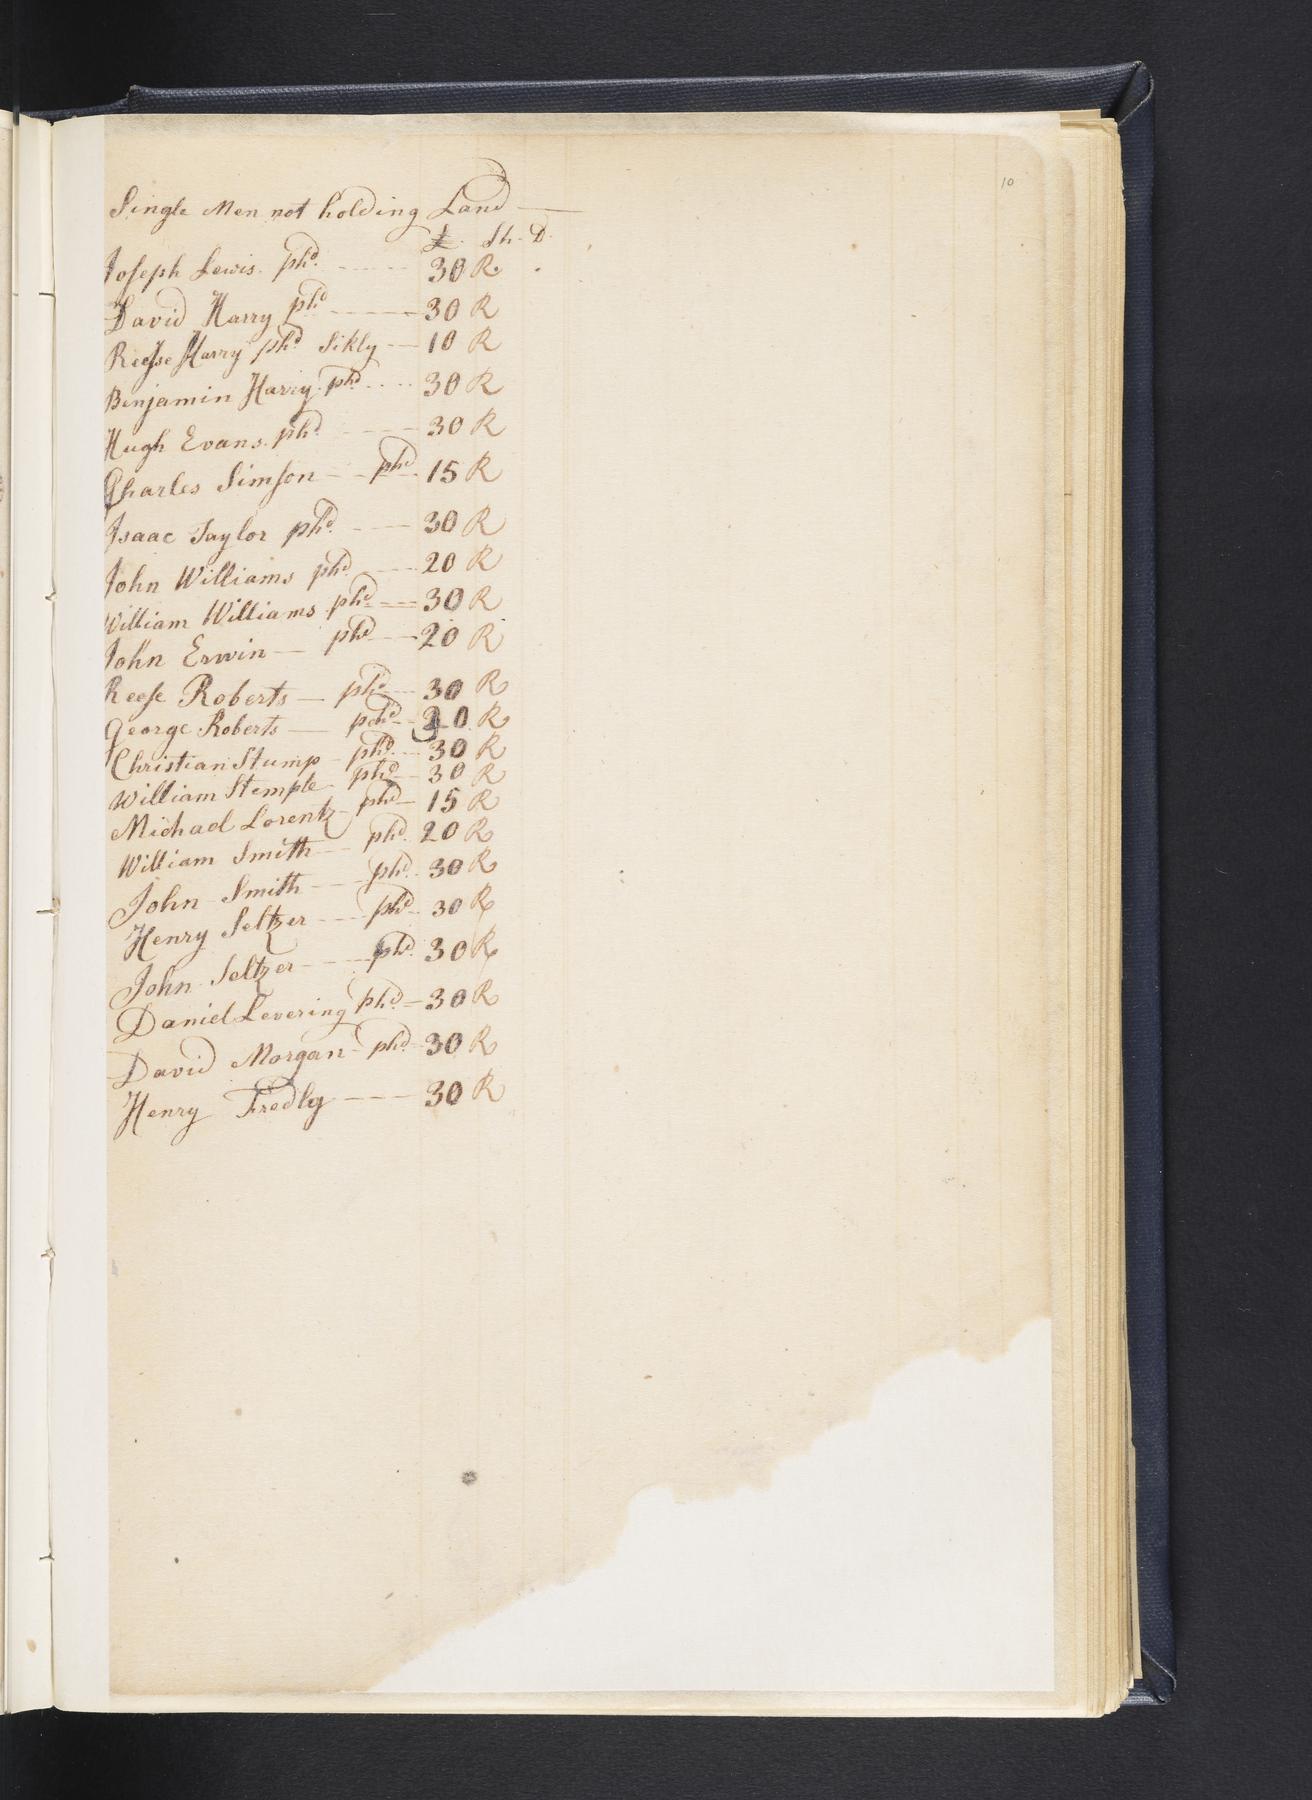 10
Single Men not holding Land
£. Sh. D.
Joseph Lewis phd. 30 R.
David Harry phd 30 R
Reese Harry phd Sikly 10 R
Benjamin Harry phd 30 R
Hugh Evans phd 30 R
Charles Simson phd 15 R
Isaac Taylor phd. 30 R
John Williams phd 20 R
William Williams phd 30 R
John Erwin phd 20 R
Reese Roberts phd 30 R
George Roberts phd R
Christian Stump phd 30 R
William Stemple phd 30 R
Michael Lorentz phd 15 R
William Smith phd. 20 R
John Smith phd. 30 R
Henry Seltzer phd 30 R
John Seltzer phd. 30 R
Daniel Levering phd 30 R
David Morgan phd. 30 R
Henry 30 R